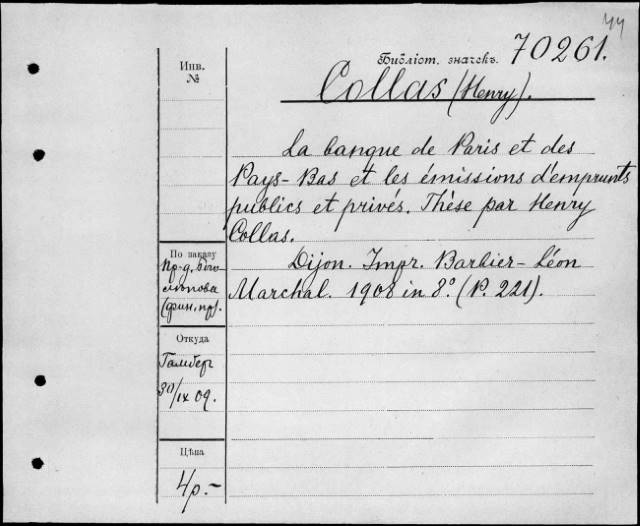 44
Библіот. значекъ. 70261.
Инв.
№
Collas (Henry).
La banque de Paris et des
Pays-Bas et les émissions d'emprunts
publics et privés. Thèse par Henry
Collas.
Dijon. Impr. Barbier-Léon
Marchal. 1908 in 8º. (P. 221).
По заказу
Пр-д. Бого
лѣпова
(фин. пр).
Откуда
Гамбер
30/IX 09.
Цѣна
4р.-